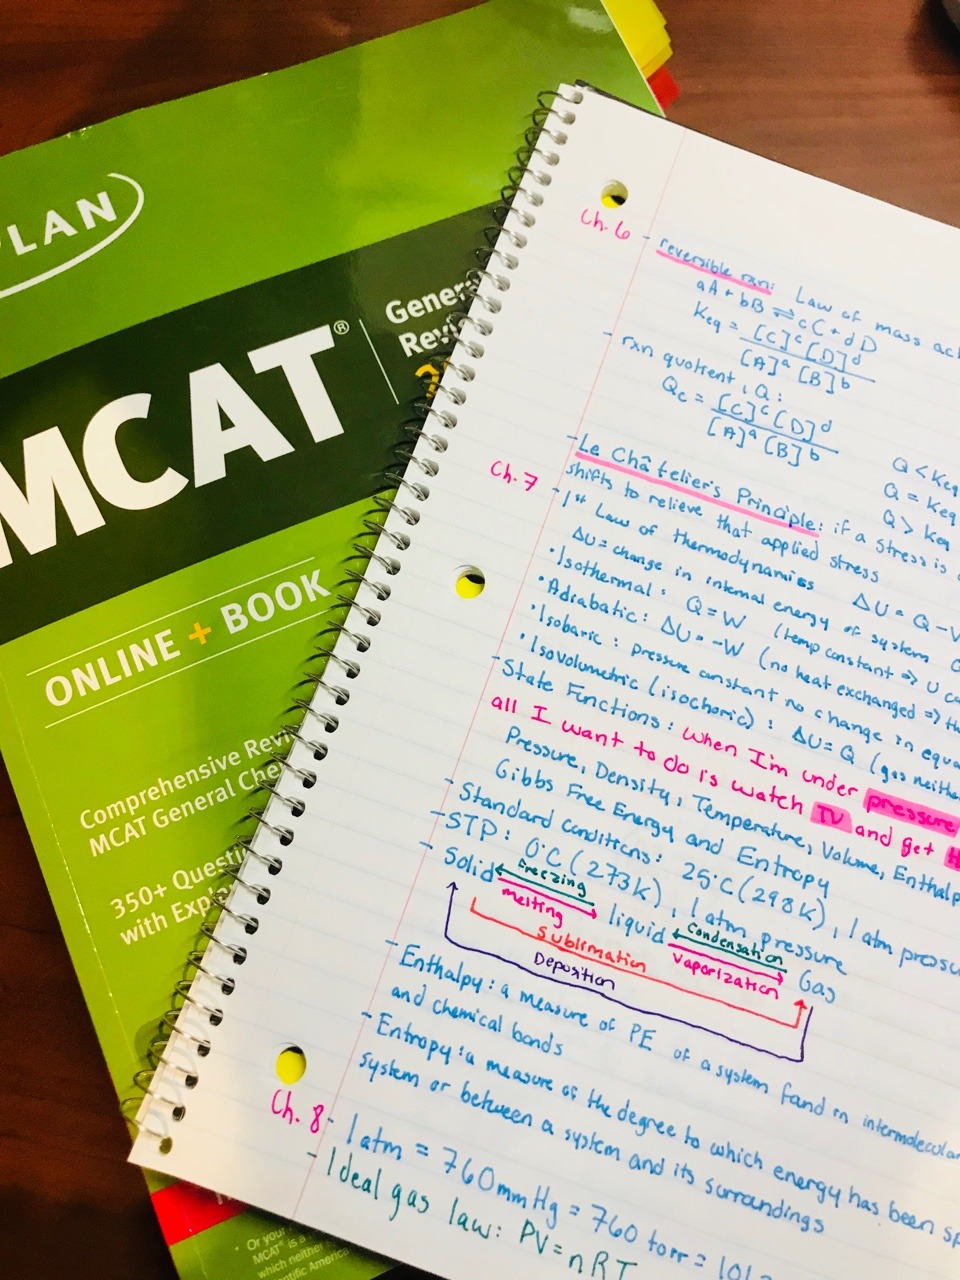 LAN
MCAT®
ONLINE + BOOK
Comprehensive
MCAT General
350+
with
MCAT®
which neither
American
Ch. 6
- reversible rxn: Law of mass
aA + bB ⇌ cC + dD
Keq = [C]ᶜ [D]ᵈ
[A]ᵃ [B]ᵇ
- rxn quotient, Q:
Qc = [C]ᶜ [D]ᵈ
[A]ᵃ [B]ᵇ
Q < Keq
Q = Keq
Q > Keq
- Le Châtelier's Principle: if a stress is
shifts to relieve that applied stress
Ch. 7
- 1st Law of thermodynamics ΔU = Q -
ΔU = change in internal energy of system
• Isothermal: Q = W (temp constant ⇒ U
• Adiabatic: ΔU = -W (no heat exchanged ⇒
• Isobaric: pressure constant no change in
• Isovolumetric (isochoric): ΔU = Q (gas
- State Functions: when I'm under pressure
all I want to do is watch TV and get
Pressure, Density, Temperature, Volume,
Gibbs Free Energy and Entropy
- Standard Conditions: 25°C (298K), 1 atm
- STP: 0°C (273K), 1 atm pressure
- Solid freezing melting liquid Condensation Vaporization Gas
Sublimation
Deposition
- Enthalpy: a measure of PE of a system found in
and chemical bonds
- Entropy: a measure of the degree to which energy has been
system or between a system and its surroundings
Ch. 8
- 1 atm = 760 mm Hg = 760 torr =
- Ideal gas law: PV = nRT